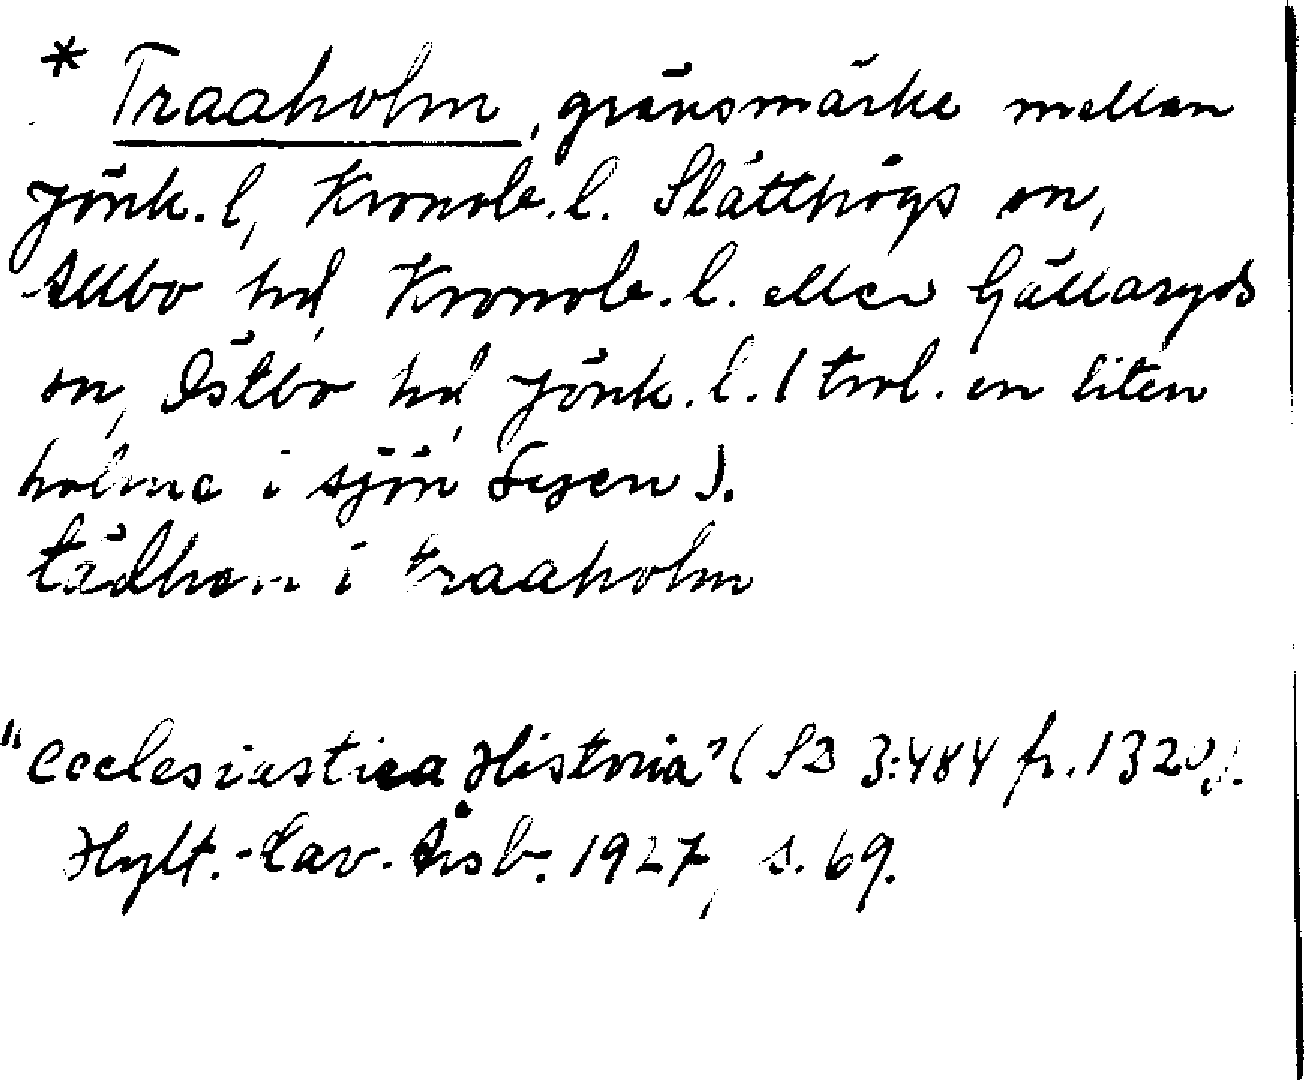 * Traaholm, gränsmärke mellan
Jönk. l, Kronob. l. Slätthögs sn,
Allbo hd, Kronob. l. eller Gällaryds
sn, Östbo hd, Jönk. l. (trol. en liten
holme i sjön Lyen).
tädhan i traaholm
"Ecclesiastica Historia" (SD 3:484 fr. 1320).
Hylt.-Cav. Årsb. 1927, s. 69.